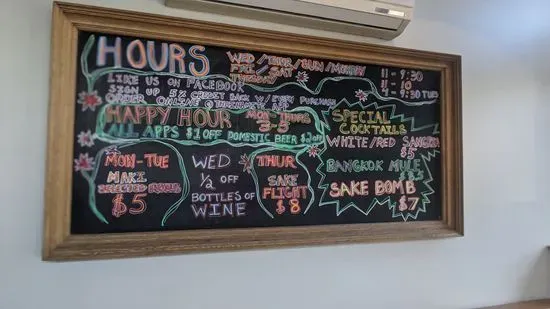 HOURS
WED/THUR/SUN/MONDAY 11 - 9:30
FRI/SAT 11 - 10
TUESDAY 4 - 9:30 TUES
LIKE US ON FACEBOOK
SIGN UP 5% CREDIT BACK W/EVERY PURCHASE
ORDER ONLINE @ APP
HAPPY HOUR MON-THURS
3-5
ALL APPS $1 OFF DOMESTIC BEER $ OFF
SPECIAL
COCKTAILS
WHITE/RED SANGRIA
$5
BANGKOK MULE
SAKE BOMB
$7
MON-TUE
MAKI
SELECTED ROLL
$5
WED
1/2 OFF
BOTTLES OF
WINE
THUR
SAKE
FLIGHT
$8